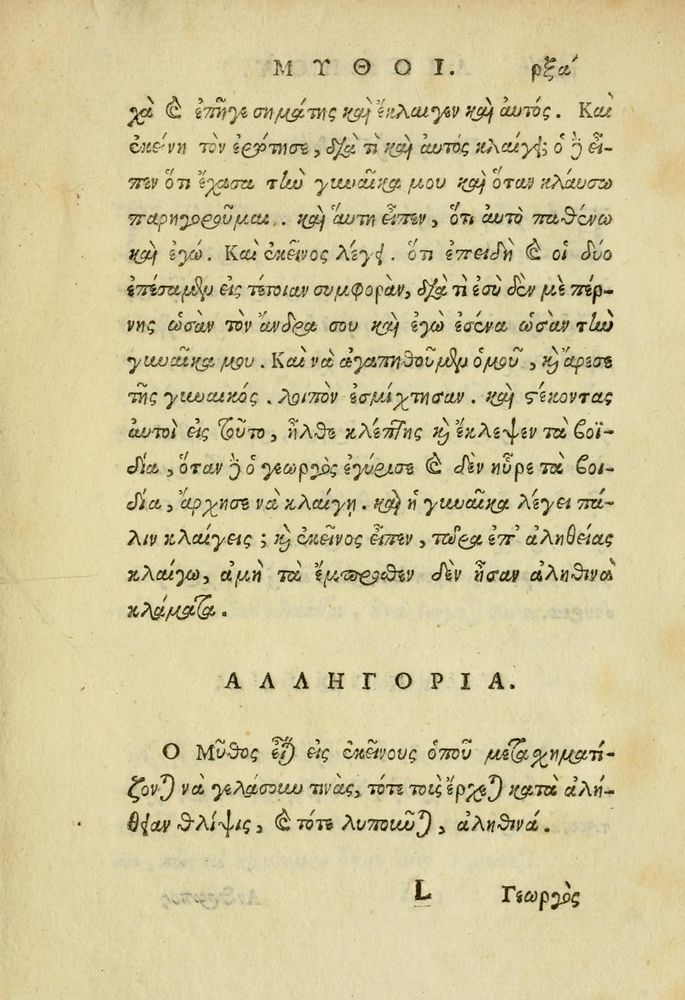 ΜΥΘΟΙ. ρξα´
χὰ καὶ ἐπῆγε σημάτης καὶ ἔκλαιγεν καὶ αὐτός. Καὶ
ἐκείνη τὸν ἐρώτησε, διὰ τὶ καὶ αὐτὸς κλαίγει; ὁ δὲ εἶ-
πεν ὅτι ἔχασα τὴν γυναῖκα μου καὶ ὅταν κλαύσω
παρηγοροῦμαι. καὶ αὕτη εἶπεν, ὅτι αὐτὸ παθένω
καὶ ἐγώ. Καὶ ἐκεῖνος λέγει. ὅτι ἐπειδὴ καὶ οἱ δύο
ἐπέσαμεν εἰς τέτοιαν συμφορὰν, διὰ τὶ ἐσὺ δὲν μὲ πέρ-
νης ὡσὰν τὸν ἄνδρα σου καὶ ἐγὼ ἐσένα ὡσὰν τὴν
γυναῖκα μου. Καὶ νὰ ἀγαπηθοῦμεν ὁμοῦ, καὶ ἄρεσε
τῆς γυναικός. λοιπὸν ἐσμίχτησαν. καὶ στέκοντας
αὐτοὶ εἰς τοῦτο, ἦλθε κλέπτης καὶ ἔκλεψεν τὰ βοΐ-
δία, ὅταν δὲ ὁ γεωργὸς ἐγύρισε καὶ δὲν ηὗρε τὰ βοι-
δία, ἄρχησε νὰ κλαίγῃ. καὶ ἡ γυναῖκα λέγει πά-
λιν κλαίγεις; καὶ ἐκεῖνος εἶπεν, τώρα ἐπ' ἀληθείας
κλαίγω, ἀμὴ τὰ ἔμπροσθεν δὲν ἦσαν ἀληθινὰ
κλάματα.
ΑΛΛΗΓΟΡΙΑ.
Ο Μῦθος εἶναι εἰς ἐκείνους ὁποῦ μετασχηματί-
ζονται νὰ γελάσουν τινὰς, τότε τοὶς ἔρχεται κατὰ ἀλή-
θειαν θλίψις, καὶ τότε λυποῦνται, ἀληθινά.
L Γεωργὸς